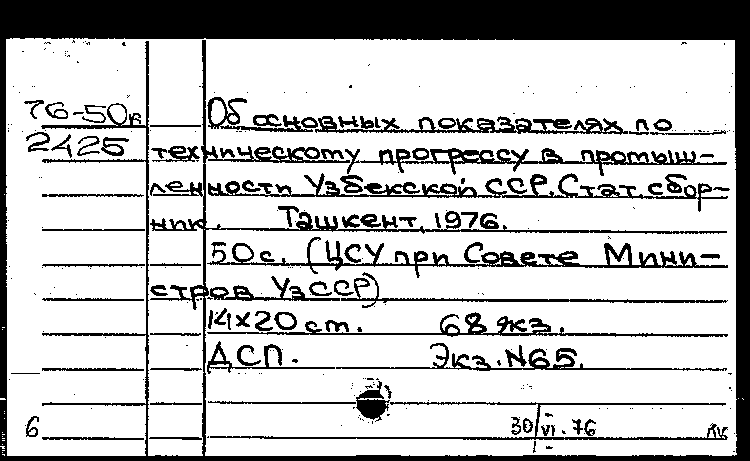 76-50к
2425
Об основных показателях по
техническому прогрессу в промыш-
ленности Узбекской ССР. Стат. сбор-
ник. Ташкент, 1976.
50 с. (ЦСУ при Совете Мини-
стров УзССР).
14х20 см. 68 экз.
ДСП. Экз. N65.
6 30/VI.76